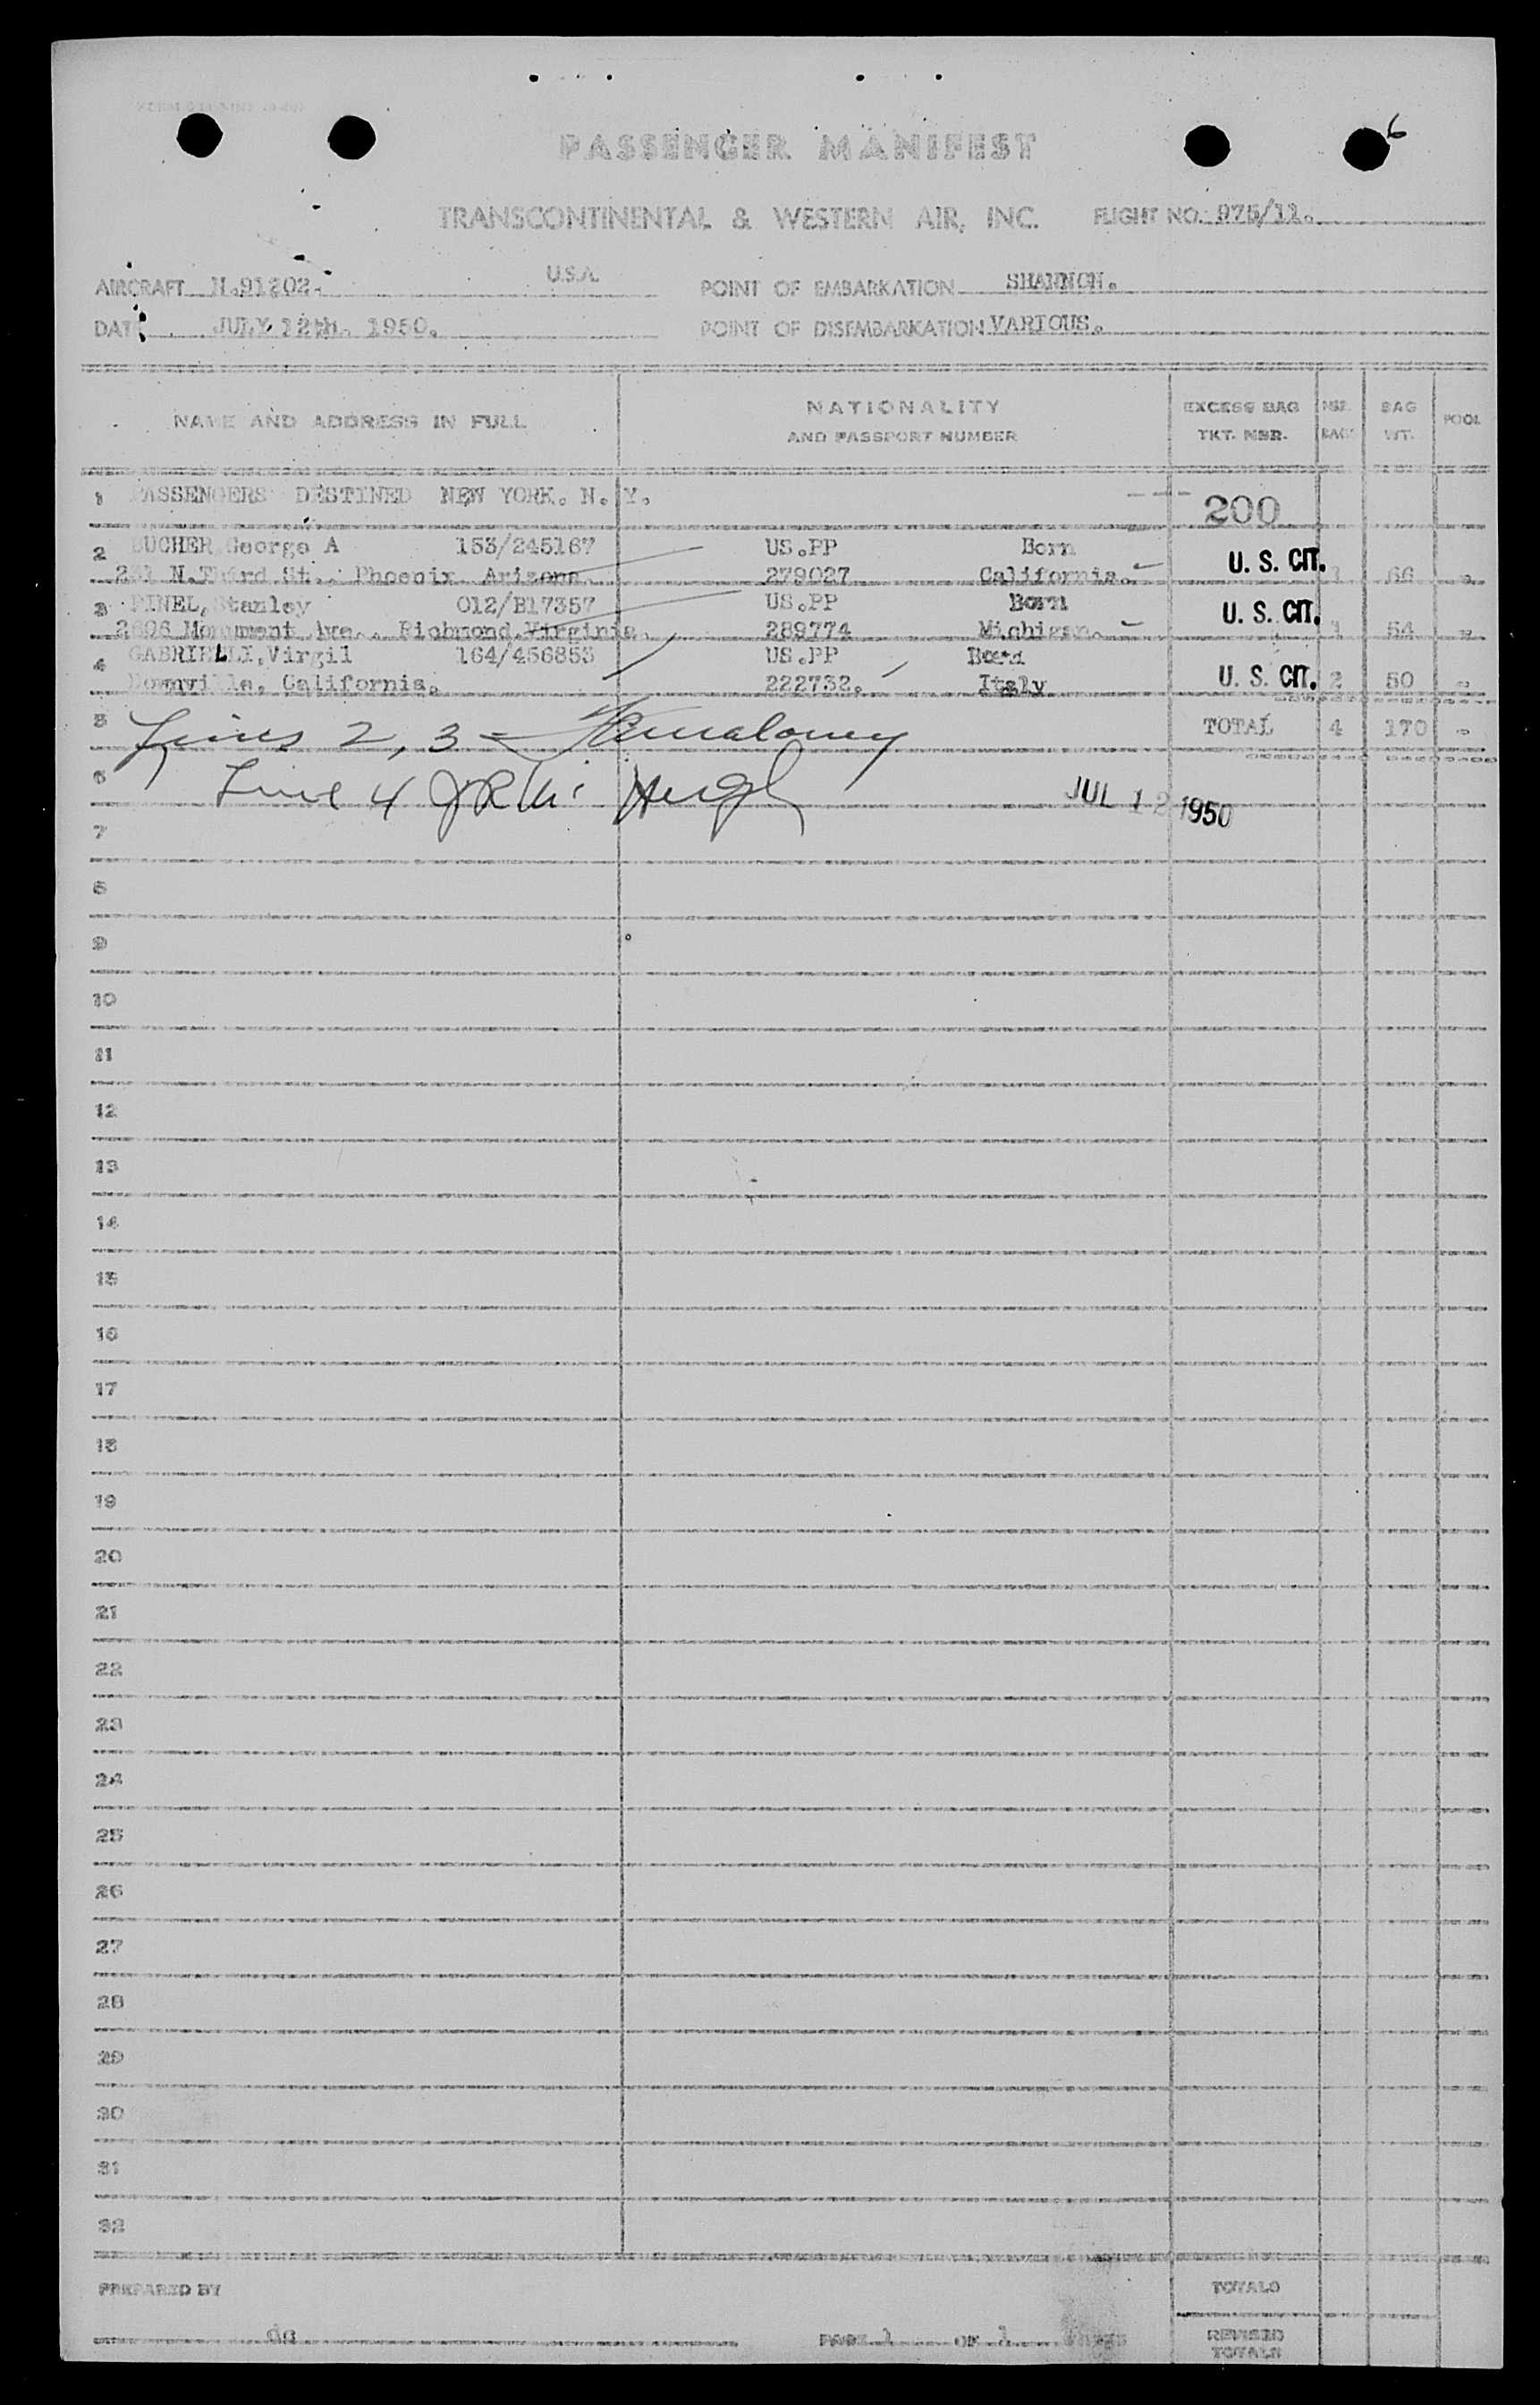 6
PASSENGER MANIFEST
TRANSCONTINENTAL & WESTERN AIR, INC. FLIGHT NO. 975/11.
AIRCRAFT N.91202. U.S.A. POINT OF EMBARKATION SHANNON.
DATE JULY 12th. 1950. POINT OF DISEMBARKATION VARIOUS.
NAME AND ADDRESS IN FULL NATIONALITY AND PASSPORT NUMBER EXCESS BAG TKT. NBR. NBR. BAGS BAG WT. POOL
1 PASSENGERS DESTINED NEW YORK. N. Y. 200
2 BUCHER George A 153/245167 US.PP Born U. S. CIT.
N. Third St., Phoenix Arizona. 279027 California. 1 66 -
3 PINEL, Stanley 012/B17357 US.PP Born U. S. CIT.
Monument Ave., Richmond Virginia. 289774 Michigan. 1 54 -
4 GABRIELLI, Virgil 164/456853 US.PP Born
Downville, California. 222732. Italy U. S. CIT. 2 50 -
5 Lines 2, 3 = TOTAL 4 170 -
6 Line 4 JUL 12 1950
7
8
9
10
11
12
13
14
15
16
17
18
19
20
21
22
23
24
25
26
27
28
29
30
31
32
PREPARED BY TOTALS
PAGE 1 OF 1 PAGES REVISED TOTALS